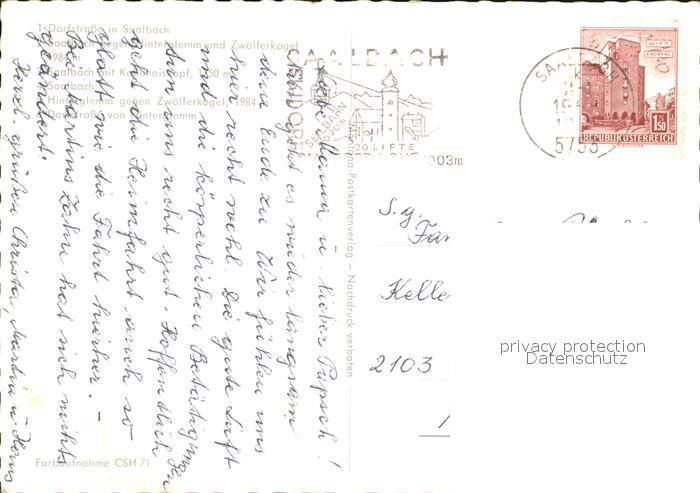 1 Dorfstraße in Saalbach
Saalbach gegen Hinterglemm und Zwölferkogel
1984 m
Saalbach mit Kohlmaiskopf, 1750 m
Saalbach
Hinterglemm gegen Zwölferkogel, 1984
Dorfstraße von Hinterglemm
Farbaufnahme CSH 71
Postkartenverlag – Nachdruck verboten
SAALBACH
SKIDORF
SEILBAHN
2020m
20 LIFTE
1003m
SAALBACH
5753
1S
1.50
REPUBLIK ÖSTERREICH
Liebe Mama u. lieber Papsch!
Nun geht es wieder langsam
dem Ende zu. Wir fühlen uns
hier recht wohl. Die gute Luft
und die körperlichen Betätigung
tun uns recht gut. Hoffentlich
geht die Heimfahrt auch so
glatt wie die Fahrt hierher. –
Bei Martins Zahn hat sich nichts
geändert.
Herzl. grüßen Christa, Martin u. Hans
S.g.
Fam
Kelle
2103
privacy protection
Datenschutz